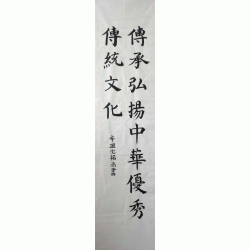 傳承弘揚中華優秀
傳統文化